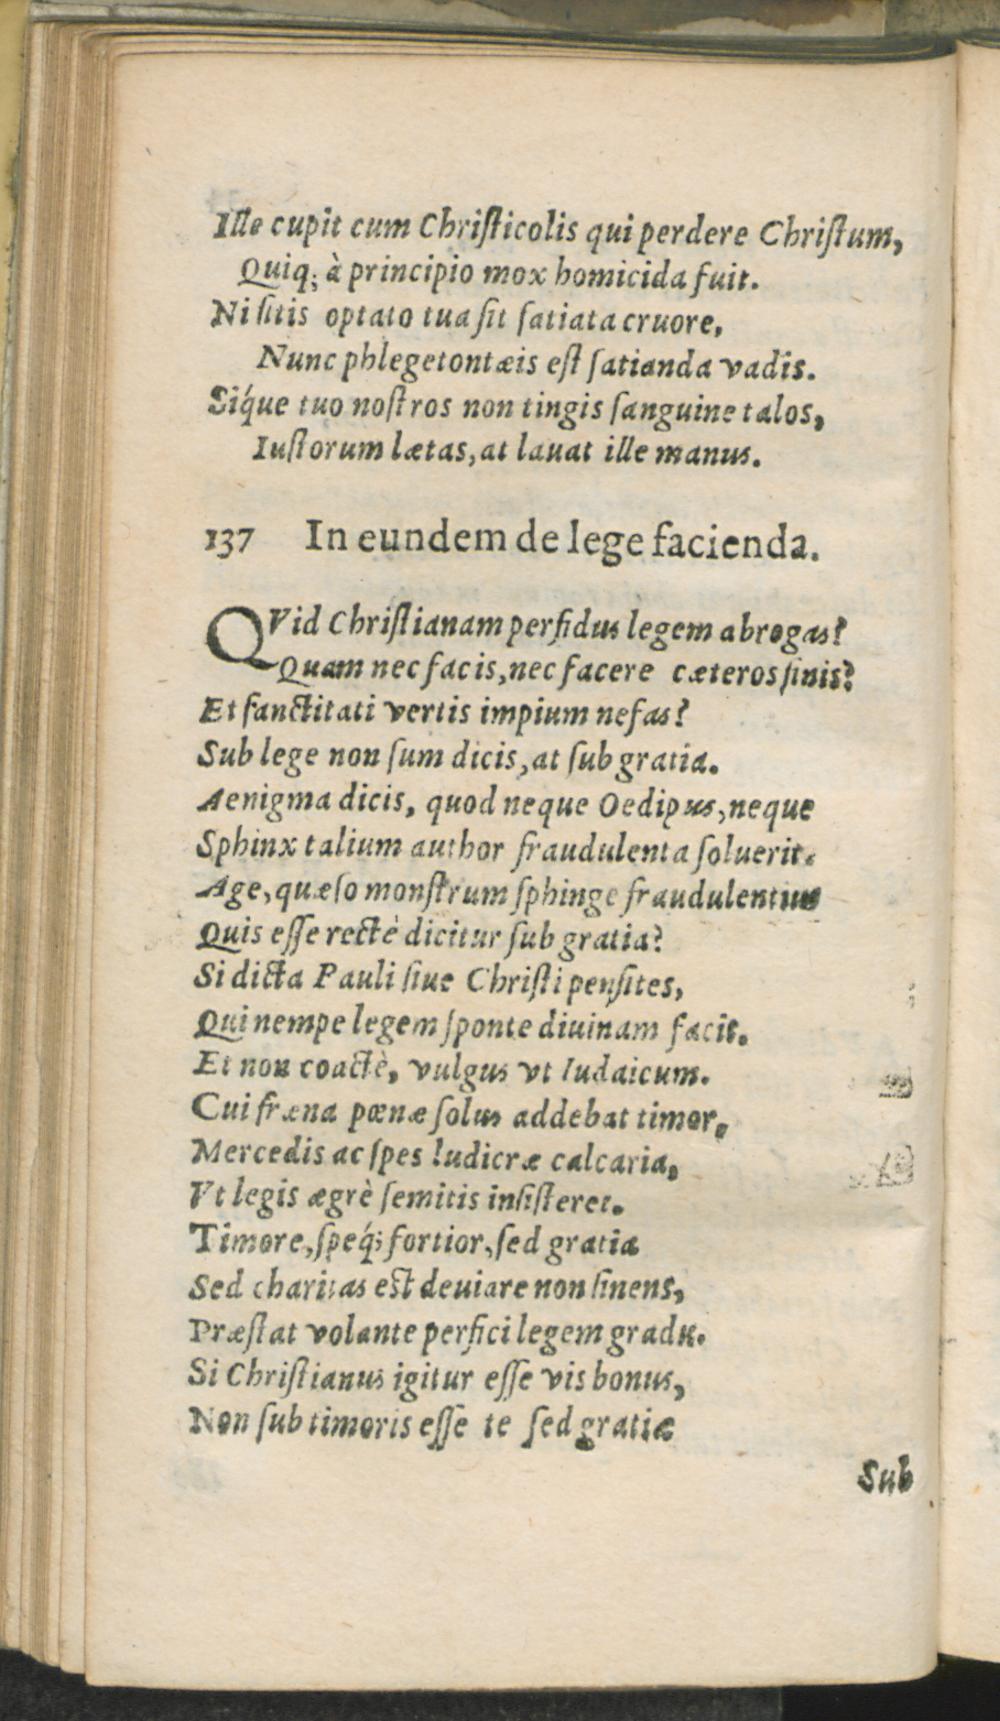 Ille cupit cum Chriſticolis qui perdere Chriſtum,
Quiq; à principio mox homicida fuit.
Ni ſitis optato tua ſit ſatiata cruore,
Nunc phlegetontæis eſt ſatianda vadis.
Siq́ue tuo noſtros non tingis ſanguine talos,
Iuſtorum lætas, at lauat ille manus.
137 In eundem de lege facienda.
QVid Chriſtianam perfidus legem abrogas?
Quam nec facis, nec facere cæteros ſinis?
Et ſanctitati vertis impium nefas?
Sub lege non ſum dicis, at ſub gratia.
Aenigma dicis, quod neque Oedipus, neque
Sphinx talium author fraudulenta ſoluerit.
Age, quæſo monſtrum ſphinge fraudulentius
Quis eſſe rectè dicitur ſub gratia?
Si dicta Pauli ſiue Chriſti penſites,
Qui nempe legem ſponte diuinam facit.
Et non coactè, vulgus vt Iudaicum.
Cui fræna pœnæ ſolus addebat timor,
Mercedis ac ſpes ludicræ calcaria,
Vt legis ægrè ſemitis inſiſteret.
Timore, ſpeq́; fortior, ſed gratia
Sed charitas eſt deuiare non ſinens,
Præſtat volante perfici legem gradu.
Si Chriſtianus igitur eſſe vis bonus,
Non ſub timoris eſſe te ſed gratiæ
Sub